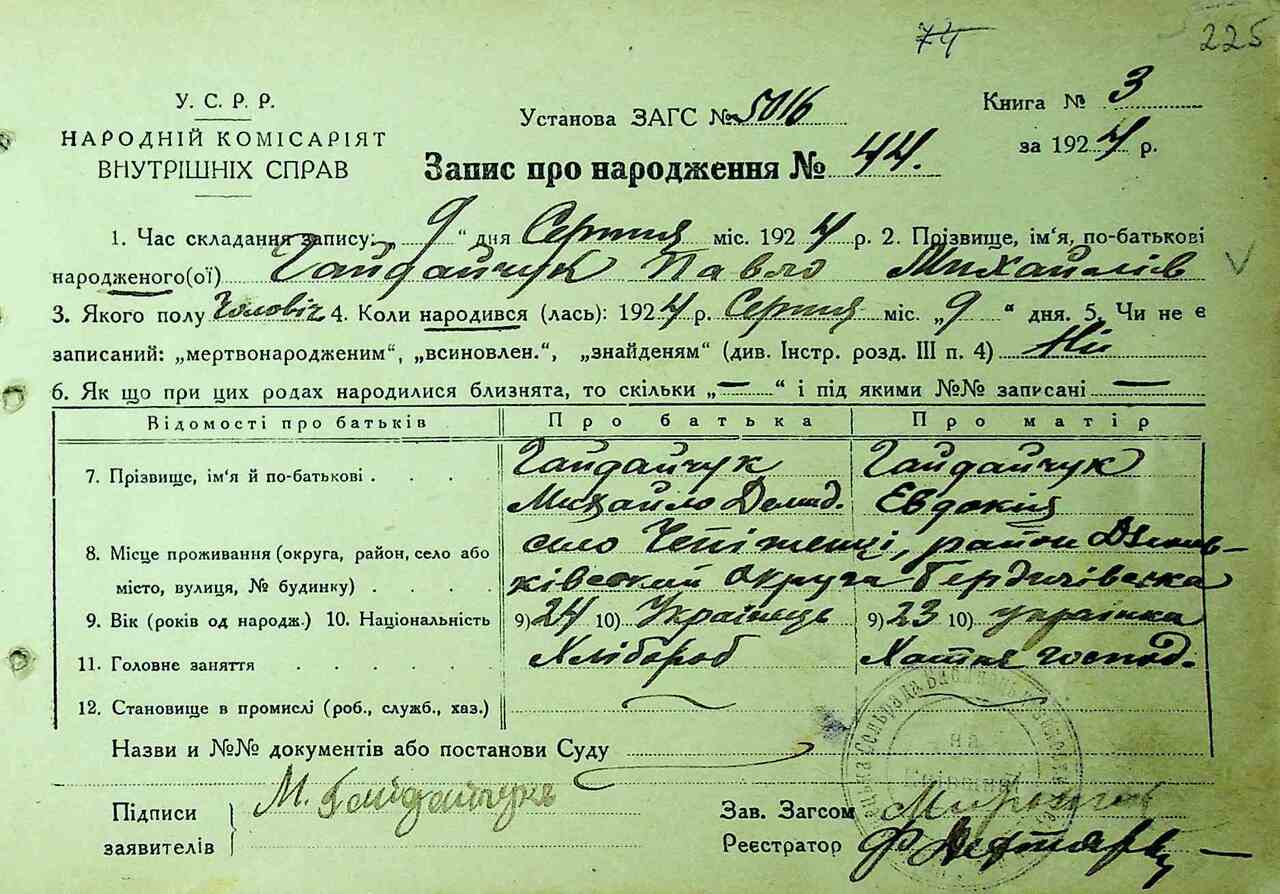 74 225
У. С. Р. Р.
НАРОДНІЙ КОМІСАРІЯТ
ВНУТРІШНІХ СПРАВ
Установа ЗАГС № 5016
Книга № 3
за 1924 р.
Запис про народження № 44.
1. Час складання запису: „ 9 “ дня Серпня міс. 1924 р. 2. Прізвище, ім‘я, по-батькові
народженого(ої) Гайдайчук Павло Михайлів
3. Якого полу Чоловіч 4. Коли народився (лась): 1924 р. Серпня міс. „9 “ дня. 5. Чи не є
записаний: „мертвонародженим“, „всиновлен.“, „знайденям“ (див. Інстр. розд. III п. 4) Ні
6. Як що при цих родах народилися близнята, то скільки „—“ і під якими №№ записані —
Відомості про батьків Про батька Про матір
7. Прізвище, ім‘я й по-батькові . . . . Гайдайчук Михайло Демид. Гайдайчук Євдокія
8. Місце проживання (округа, район, село або село район
місто, вулиця, № будинку) . . . . округа Бердичівська
9. Вік (років од народж.) 10. Національність 9) 24 10) Українець 9) 23 10) українка
11. Головне заняття . . . . . . Хлібороб Хатня господ.
12. Становище в промислі (роб., служб., хаз.)
Назви и №№ документів або постанови Суду
Підписи
заявителів
М. Гайдайчук
Зав. Загсом
Реєстратор